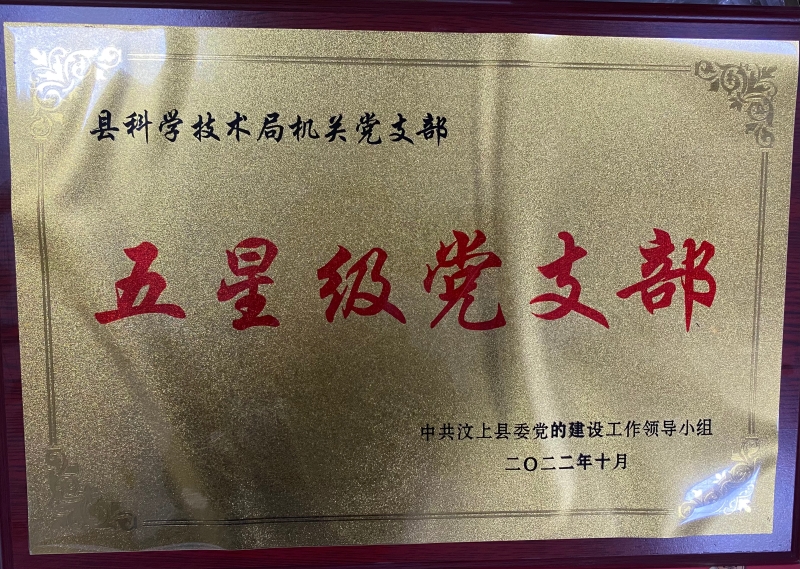 县科学技术局机关党支部
五星级党支部
中共汶上县委党的建设工作领导小组
二〇二二年十月